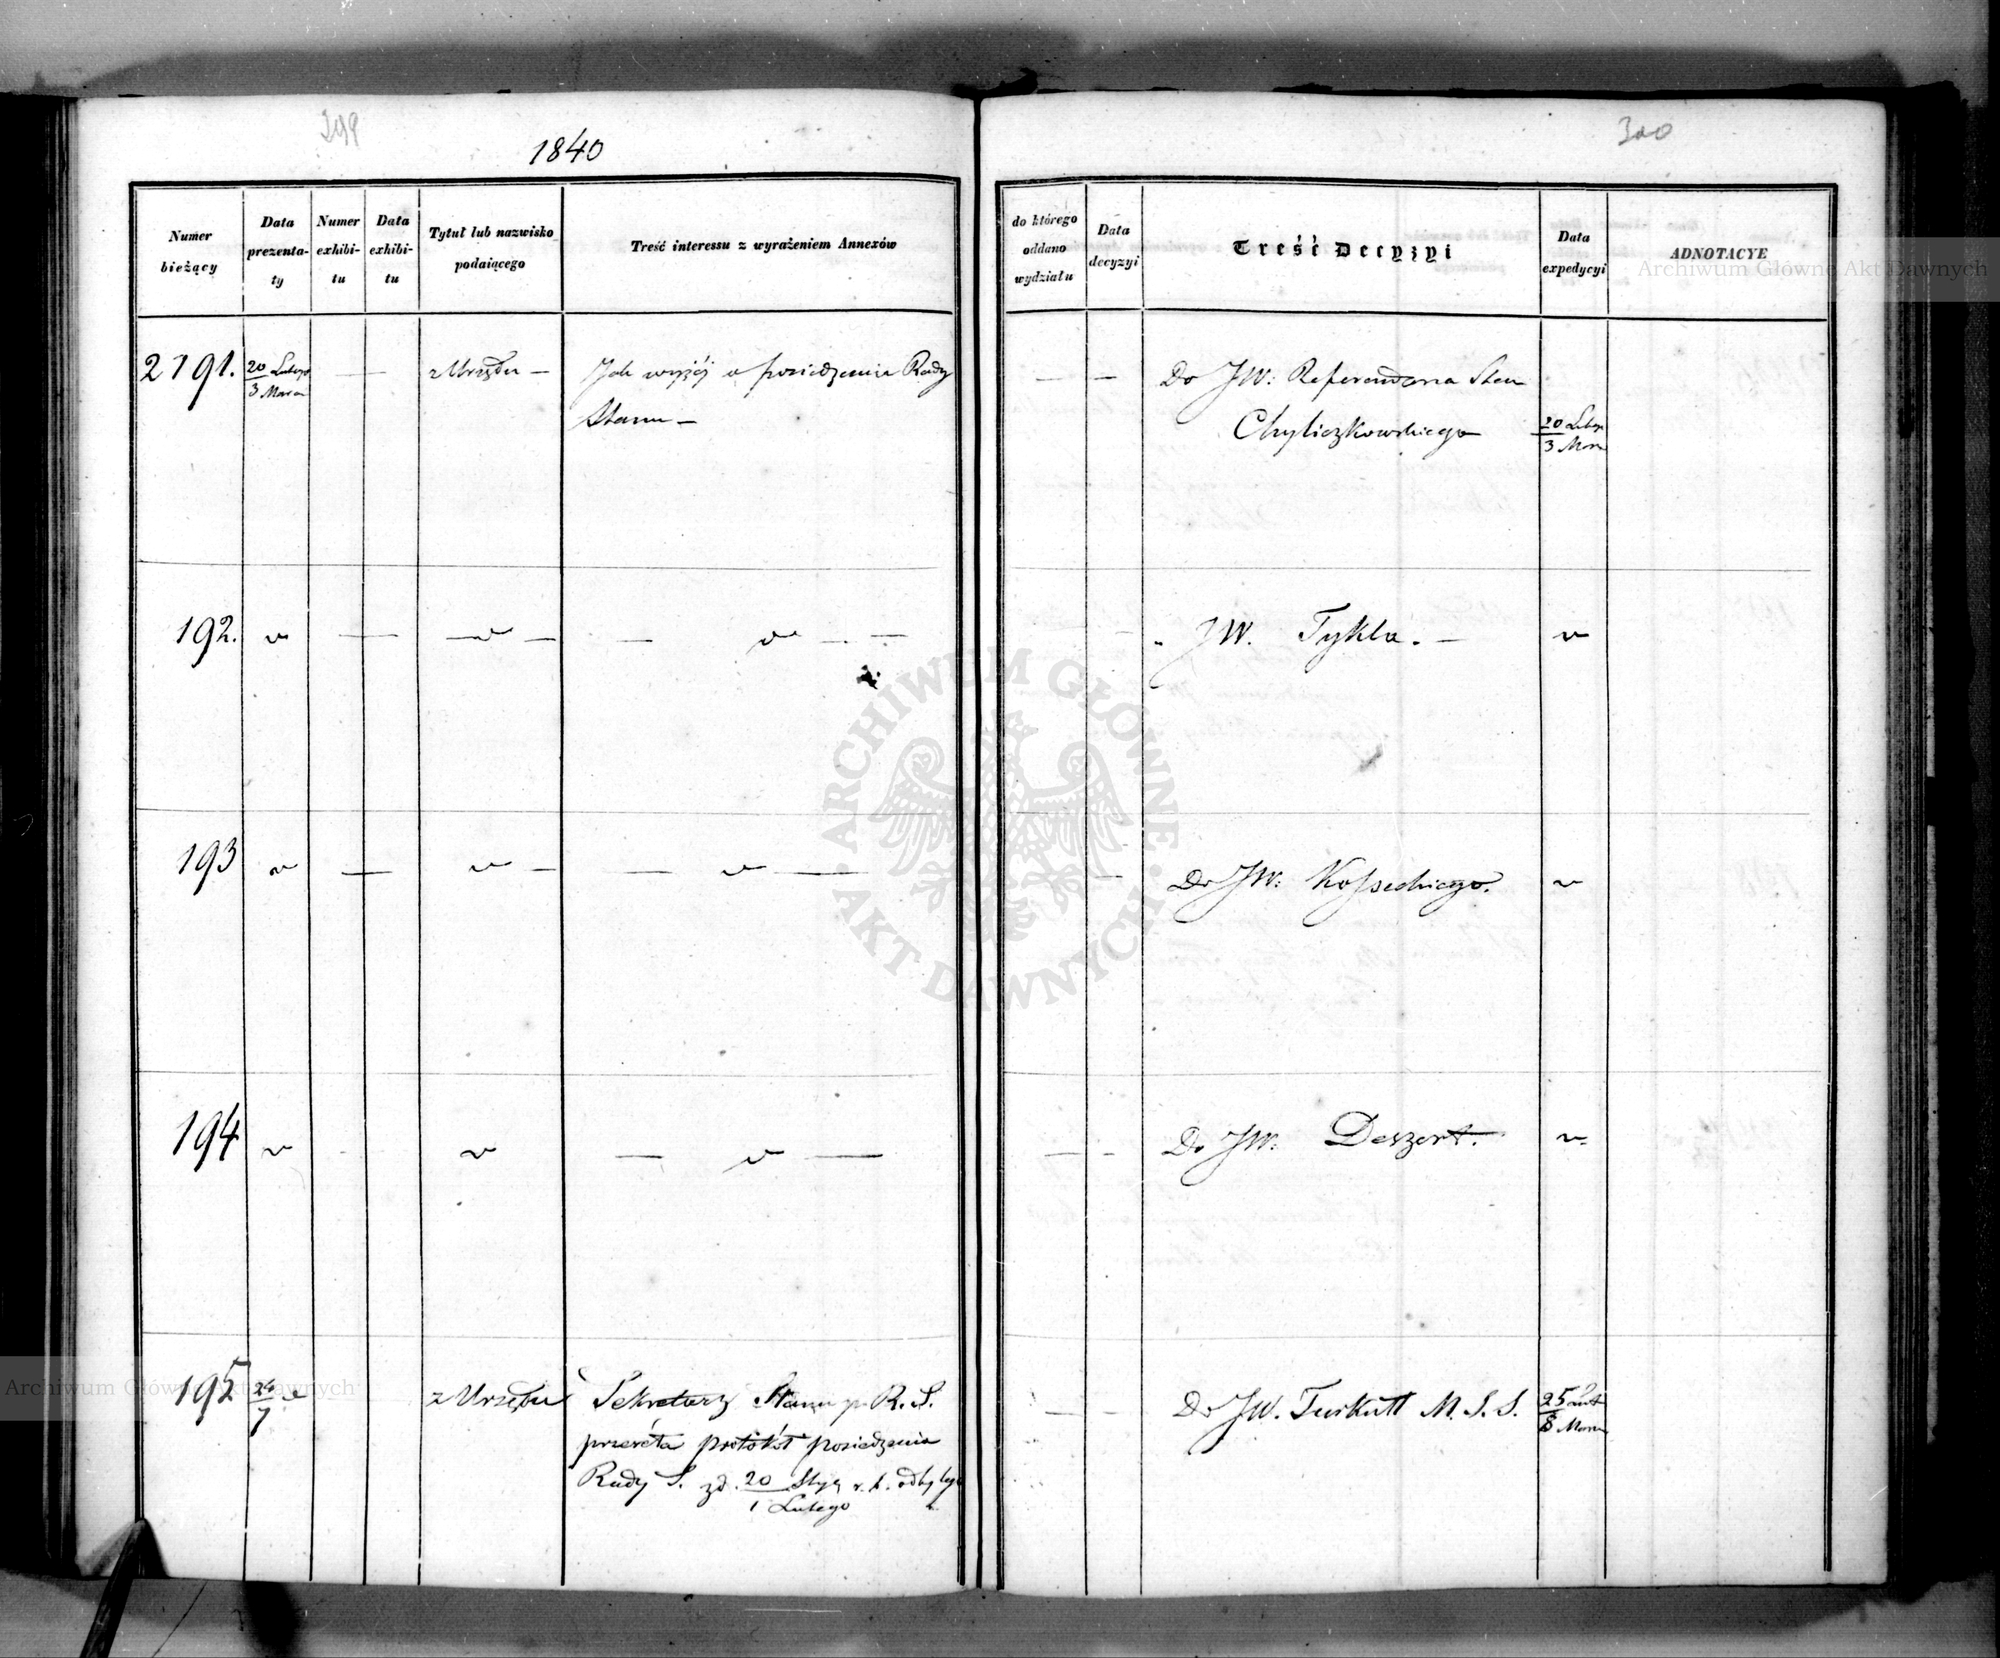 299
1840
Numer
bieżący
Data
prezenta-
ty
Numer
exhibi-
tu
Data
exhibi-
tu
Tytuł lub nazwisko
podaiącego
Treść interessu z wyrażeniem Annexów
2191.
20 Lutego
3 Marca
z Urzędu —
Jak wyżej o posiedzeniu Rady
Stanu —
192.
193
194
195
24
7
z Urzędu
Sekretarz Stanu p. R. S.
przesyła protokół posiedzenia
Rady S. z d. 20 Stycz r. b. odbytego
1 Lutego
300
do którego
oddano
wydziału
Data
decyzyi
Treść Decyzyi
Data
expedycyi
ADNOTACYE
Do JW: Referendarza Stanu
Chyliczkowskiego
20 Lutego
3 Marca
JW. Tykla. —
Do JW: Kosseckiego.
Do JW: Deszert.
Do JW. Turkułł M. S. S.
25 Lut
8 Marca
Archiwum Główne Akt Dawnych
Archiwum Główne Akt Dawnych
ARCHIWUM GŁÓWNE
AKT DAWNYCH